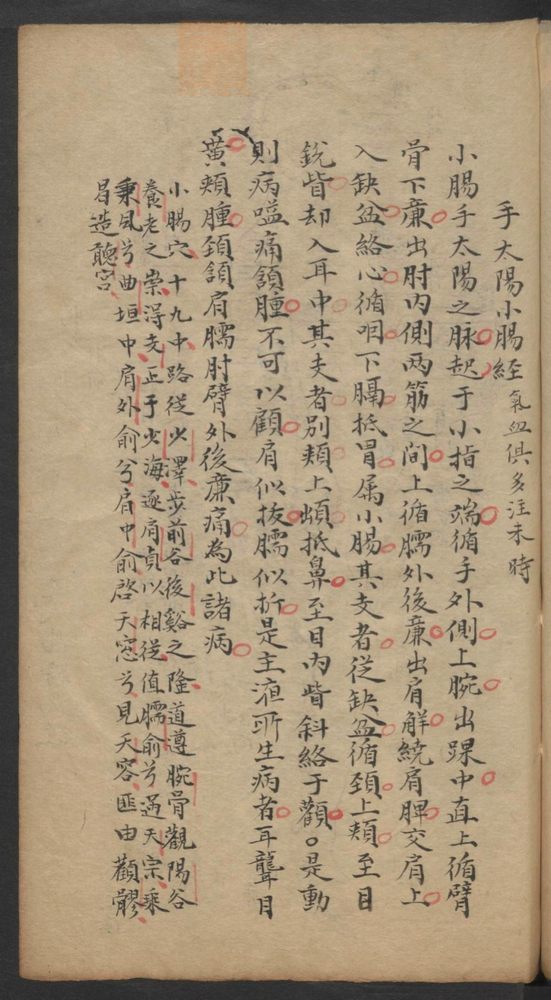 手太陽小腸經 氣血俱多注未時
小腸手太陽之脉起于小指之端循手外側上腕出踝中直上循臂
骨下廉出肘内側两筋之间上循臑外後廉出肩解繞肩脾交肩上
入缺盆絡心循咽下膈抵胃属小腸其支者從缺盆循頚上頬至目
銳眥却入耳中其支者别頬上䪼抵鼻至目内眥斜絡于顴○是動
則病嗌痛頷腫不可以顧肩似拔臑似折是主液所生病者耳聾目
黄頬腫頚頷肩臑肘臂外後廉痛為此諸病
小腸穴十九中路從少澤步前谷後谿之隆道遵腕骨觀陽谷
養老之崇得支正于少海逐肩貞以相從值臑俞兮遇天宗乘
秉風兮曲垣中肩外俞兮肩中俞啓天窓兮見天容匪由顴髎
曷造聽宫